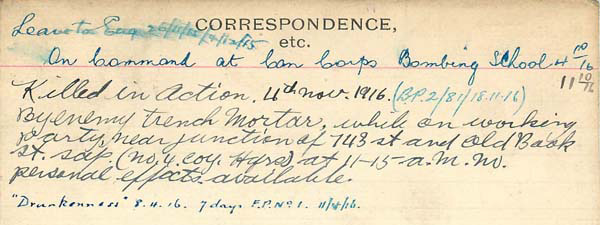 CORRESPONDENCE,
etc.
Leave to Eng 26/11/15 / 4/12/15
On Command at Can Corps Bombing School 4 10/16
11 10/16
Killed in Action. 4th Nov. 1916. (B.P. 2/81/18.11.16)
By enemy trench Mortar, while on working
Party, near junction of 143 st and Old Book
st. sap, (no, 4, coy. Hqrs) at 11-15 a.m. no.
personal effects available.
"Drunkenness" 8.11.16. 7 days F.P. No 1. 11/4/16.